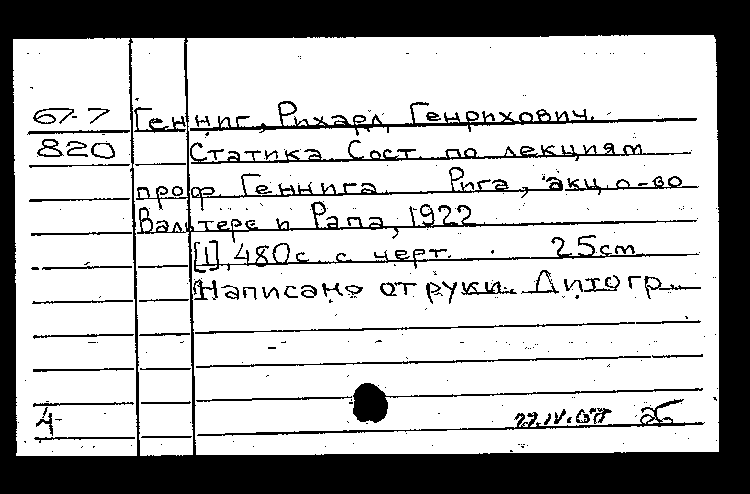 67-7 Генниг, Рихард Генрихович.
820 Статика Сост. по лекциям
проф. Геннига. Рига, акц. о-во
Вальтерс и Рапа, 1922
[1], 480с. с черт. 25cm
Написано от руки. Литогр.
4